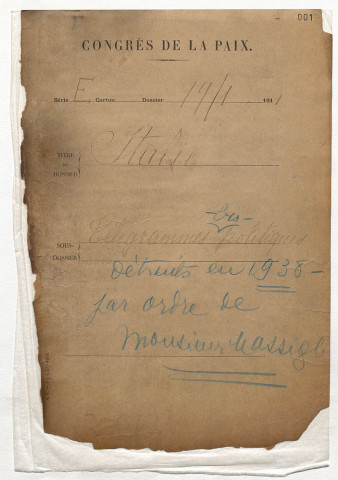 001
CONGRÈS DE LA PAIX.
Série E, Carton Dossier 14/1 191
TITRE DU DOSSIER
SOUS-DOSSIER Télégrammes politiques
Détruits en 1938 -
par ordre de
Monsieur Massigli